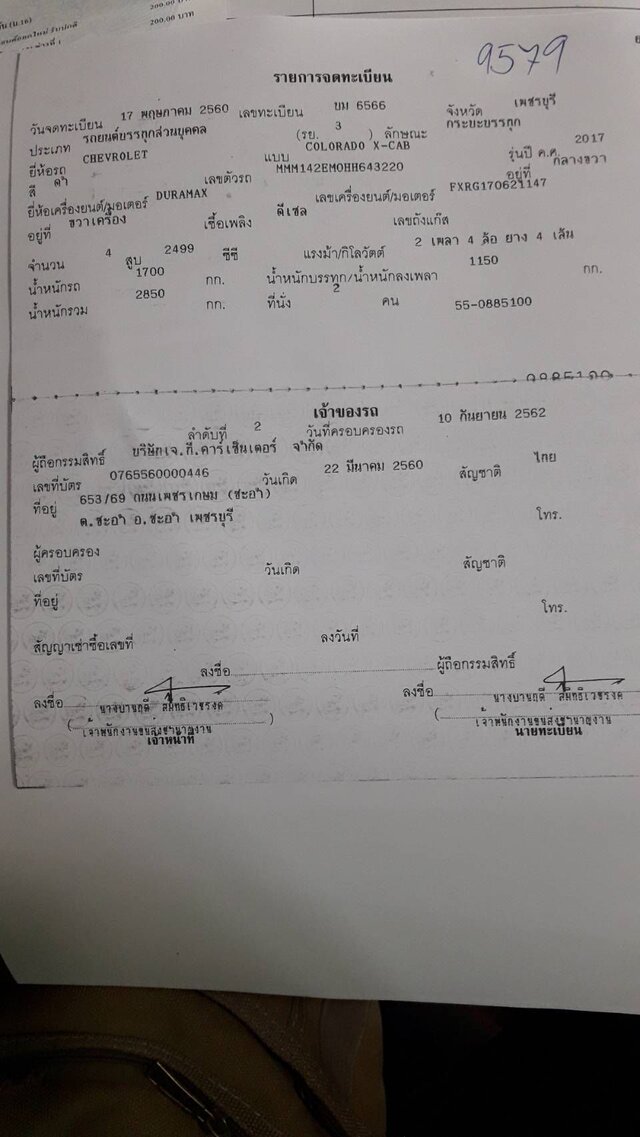 200.00 บาท
200.00 บาท
9579
รายการจดทะเบียน
วันจดทะเบียน 17 พฤษภาคม 2560 เลขทะเบียน ขม 6566 จังหวัด เพชรบุรี
ประเภท รถยนต์บรรทุกส่วนบุคคล (รย. 3 ) ลักษณะ กระบะบรรทุก
ยี่ห้อรถ CHEVROLET แบบ COLORADO X-CAB รุ่นปี ค.ศ. 2017
สี ดำ เลขตัวรถ MMM142EM0HH643220 อยู่ที่ กลางขวา
ยี่ห้อเครื่องยนต์/มอเตอร์ DURAMAX เลขเครื่องยนต์/มอเตอร์ FXRG170621147
อยู่ที่ ขวาเครื่อง เชื้อเพลิง ดีเซล เลขถังแก๊ส
จำนวน 4 สูบ 2499 ซีซี แรงม้า/กิโลวัตต์ 2 เพลา 4 ล้อ ยาง 4 เส้น
น้ำหนักรถ 1700 กก. น้ำหนักบรรทุก/น้ำหนักลงเพลา 1150 กก.
น้ำหนักรวม 2850 กก. ที่นั่ง 2 คน 55-0885100
เจ้าของรถ
ลำดับที่ 2 วันที่ครอบครองรถ 10 กันยายน 2562
ผู้ถือกรรมสิทธิ์ บริษัทเจ.ที.คาร์เซ็นเตอร์ จำกัด
เลขที่บัตร 0765560000446 วันเกิด 22 มีนาคม 2560 สัญชาติ ไทย
ที่อยู่ 653/69 ถนนเพชรเกษม (ชะอำ)
ต.ชะอำ อ.ชะอำ เพชรบุรี โทร.
ผู้ครอบครอง
เลขที่บัตร วันเกิด สัญชาติ
ที่อยู่ โทร.
สัญญาเช่าซื้อเลขที่ ลงวันที่
ลงชื่อ ผู้ถือกรรมสิทธิ์
ลงชื่อ ลงชื่อ
( เจ้าพนักงานขนส่งชำนาญงาน ) ( เจ้าพนักงานขนส่งชำนาญงาน
เจ้าหน้าที่ นายทะเบียน